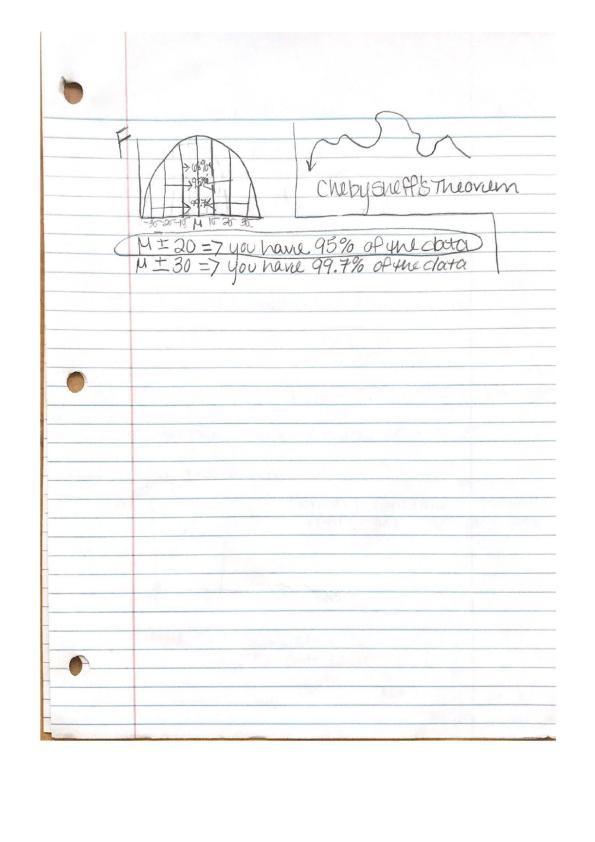 F
68%
95%
99.7%
-3σ -2σ -1σ μ 1σ 2σ 3σ
Chebysheff's Theorem
μ ± 2σ => you have 95% of the data
μ ± 3σ => you have 99.7% of the data